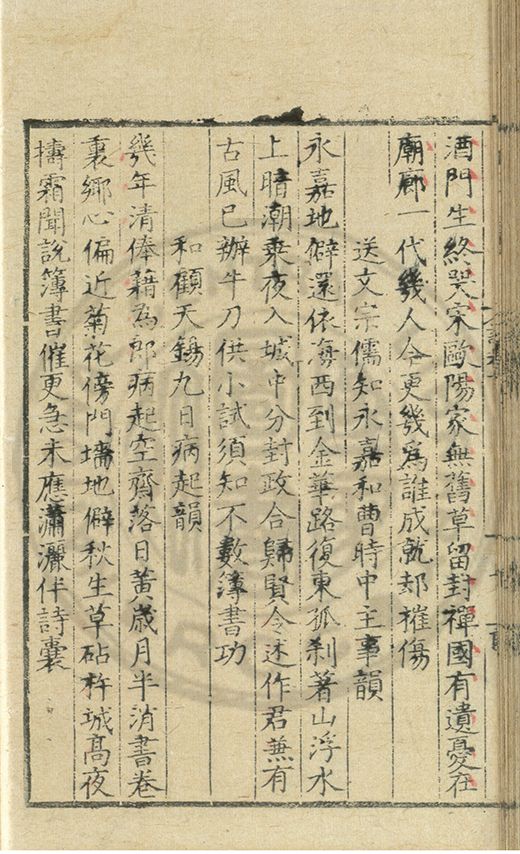 酒門生終哭宋歐陽家無舊草留封禪國有遺憂在
廟廊一代幾人今更幾爲誰成就却摧傷
送文宗儒知永嘉和曹時中主事韻
永嘉地僻還依海西到金華路復東孤刹著山浮水
上暗潮乗夜入城中分封政合歸賢令述作君兼有
古風已辦牛刀供小試須知不數簿書功
和顧天錫九日病起韻
幾年清俸藉爲郎病起空齋落日黃歲月半消書卷
裏鄉心偏近菊花傍門墻地僻秋生草砧杵城高夜
擣霜聞說簿書催更急未應瀟灑伴詩囊